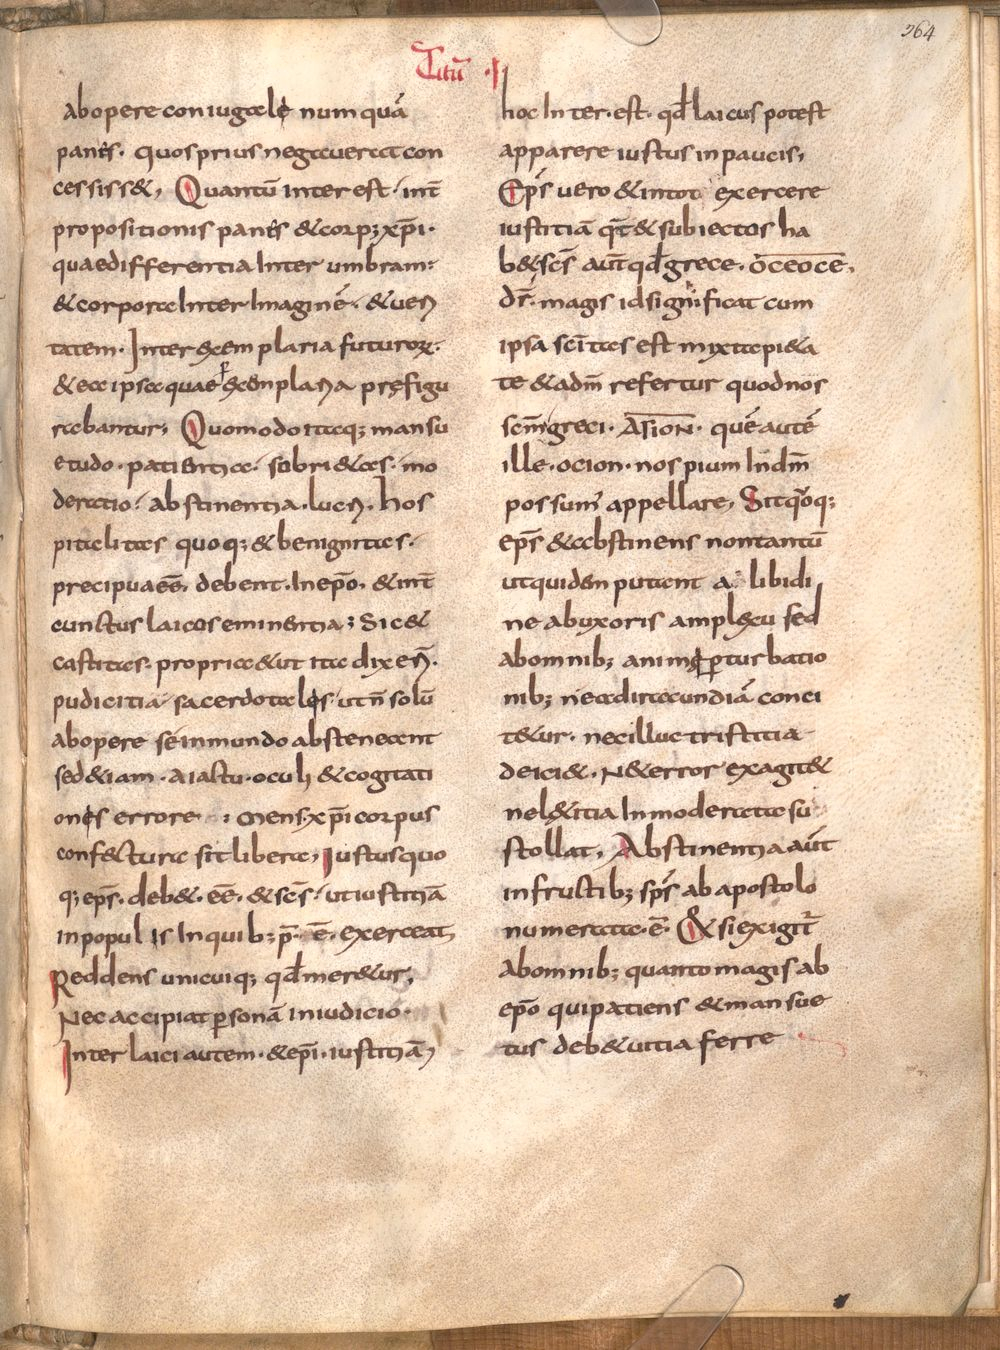 364
Titū · I
ab opere coniugale numquā
panes. quos prius negauerat con
cessiss&, Quantū inter est. int̄
propositionis panes & corpꝫ xp̄i.
quae differentia Inter umbram:
& corpora Inter Imaginē. & ueri
tatem. Inter exemplaria futuroꝝ.
& ea ipsa quae p̄ exemplaria prefigu
rabantur, Quomodo itaqꝫ mansu
etudo. patientia. sobri&as. mo
deratio. abstinentia. lucri. hos
pitalitas quoqꝫ & benignitas.
precipuae eē. debent. In ep̄o. & int̄
cunctus laicos eminentia; Sic &
castitas. propria & ut ita dixerī.
pudicitia sacerdotales. ut n̄ solū
ab opere se inmundo absteneant
sed &iam. a iactu. oculi & cogitati
ones errore : mens xp̄i corpus
confectura sit libera, Iustus quo
qꝫ ep̄s. deb&. eē. & sc̄s. ut iustitiā
in populis In quibꝫ p̄. ē. exerceat,
Reddens unicuiqꝫ qd̄ mer&ur,
Nec accipiat ꝑsonā in iudicio.
Inter laici autem. & ep̄i. iustitiā,
hoc Inter. est. qd̄ laicus potest
apparere iustus in paucis,
Ep̄s uero & in tot exercere
iustitiā q̄t & subiectos ha
b& sc̄s aut̄ qd̄ grece. ōc̄eōc̄ē.
dr̄. magis id significat cum
ipsa sc̄itas est mixta pi&a
te & ad dm̄ refertur quod nos
sc̄m greci. ASION. quē autē
ille. ocion. nos pium In dm̄
possum' appellare, Sit quoqꝫ
ep̄s & abstinens non tantū
ut quidem putant a libidi
ne ab uxoris amplexu sed
ab omnibꝫ animę ꝑturbatio
nibꝫ ne ad iracundiā conci
t&ur. nec illuc tristitia
deici&. N& error exagit&
ne l&itia Inmoderata su
stollat, Abstinentia aut̄
in fructibꝫ sp̄s ab apostolo
numerata. ē. & si exigit̄
ab omnibꝫ quanto magis ab
ep̄o qui patiens & mansue
tus deb& uitia ferre